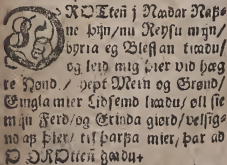 DROtteñ j Nꜳdar Naf-
ne þijn/ nu Reysu mijn/
byria eg Blessan trædu/
og leid mig þier vid hæg
re Hønd. / hept Mein og Grønd/
Eingla mier Lidsemd trædu/ øll sie
mijn Ferd/ og Erinda giørd/ velsig-
nd af þier/ til þarfa mier/ þar ad
O DROtteñ giædu+